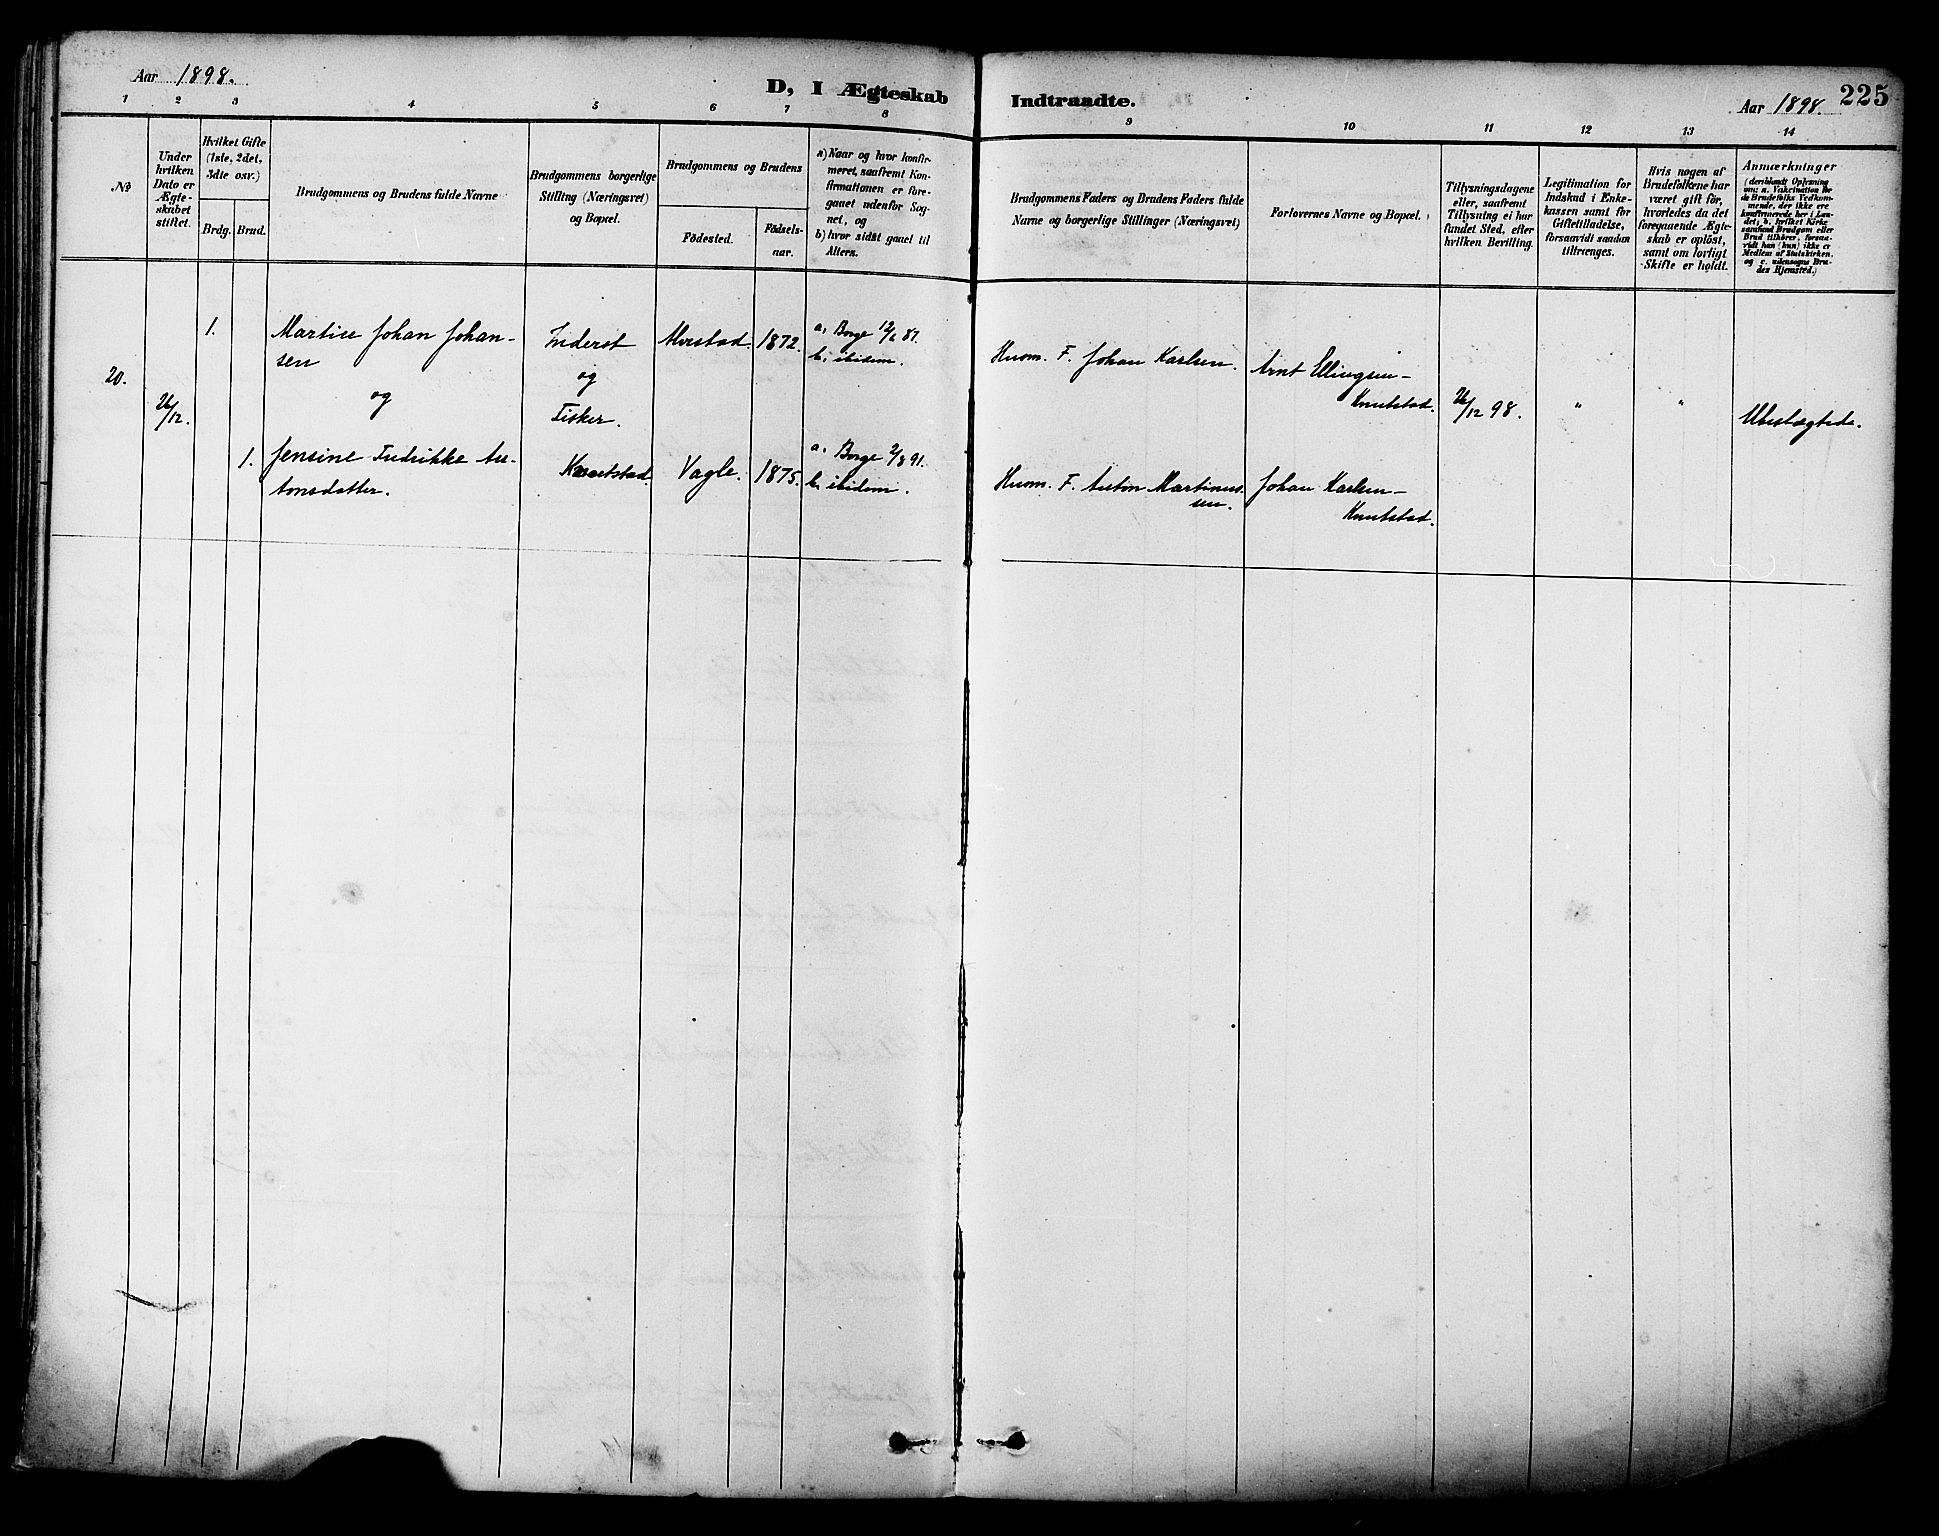 Aar 1898.
D, I Ægteskab
Indtraadte.
Aar 1898.
225
1 2 3 4 5 6 7 8
9 10 11 12 13 14
№
Under
hvilken
Dato er
Ægte-
skabet
stiftet.
Hvilket Gifte
(1ste, 2det,
3die osv.)
Brdg. Brud.
Brudgommens og Brudens fulde Navne
Brudgommens borgerlige
Stilling (Næringsvei)
og Bopæl.
Brudgommens og Brudens
Födested.
Födsels-
aar.
a) Naar og hvor konfir-
meret, saafremt Kon-
firmationen er fore-
gaaet udenfor Sog-
net, og
b) hvor sidst gaaet til
Alters.
Brudgommens Faders og Brudens Faders fulde
Navne og borgerlige Stillinger (Næringsvei)
Forlovernes Navne og Bopæl.
Tillysningsdagene
eller, saafremt
Tillysning ei har
fundet Sted, efter
hvilken Bevilling.
Legitimation for
Indskud i Enke-
kassen samt for
Giftetilladelse,
forsaavidt saadan
tiltrænges.
Hvis nogen af
Brudefolkene har
været gift för,
hvorledes da det
foregaaende Ægte-
skab er oplöst,
samt om lovligt
Skifte er holdt.
Anmærkninger
(deriblandt Oplysning
om: a. Vakcination for
de Brudefolks Vedkom-
mende, der ikke ere
konfirmerede her i Lan-
det; b. hvilket Kirke-
samfund Brudgom eller
Brud tilhörer, forsaa-
vidt han (hun) ikke er
Medlem af Statskirken,
og c. udensogns Bru-
des Hjemsted.)
20.
26/12.
1.
Johan Johan-
sen
og
Inderst
og
Fisker.
1872.
a. Borge 87.
b. ibidem.
Husm. F. Johan Karlsen.
Arnt Ellingsen-
Knutstad.
26/12 98.
"
"
1.
Jensine Fredrikke An-
tonsdatter.
Knutstad.
Vagle.
1875.
a. Borge 91.
b. ibidem.
Husm. F. Anton Martinus-
sen.
Johan Karlsen-
Knutstad.
Ubeslægtede.